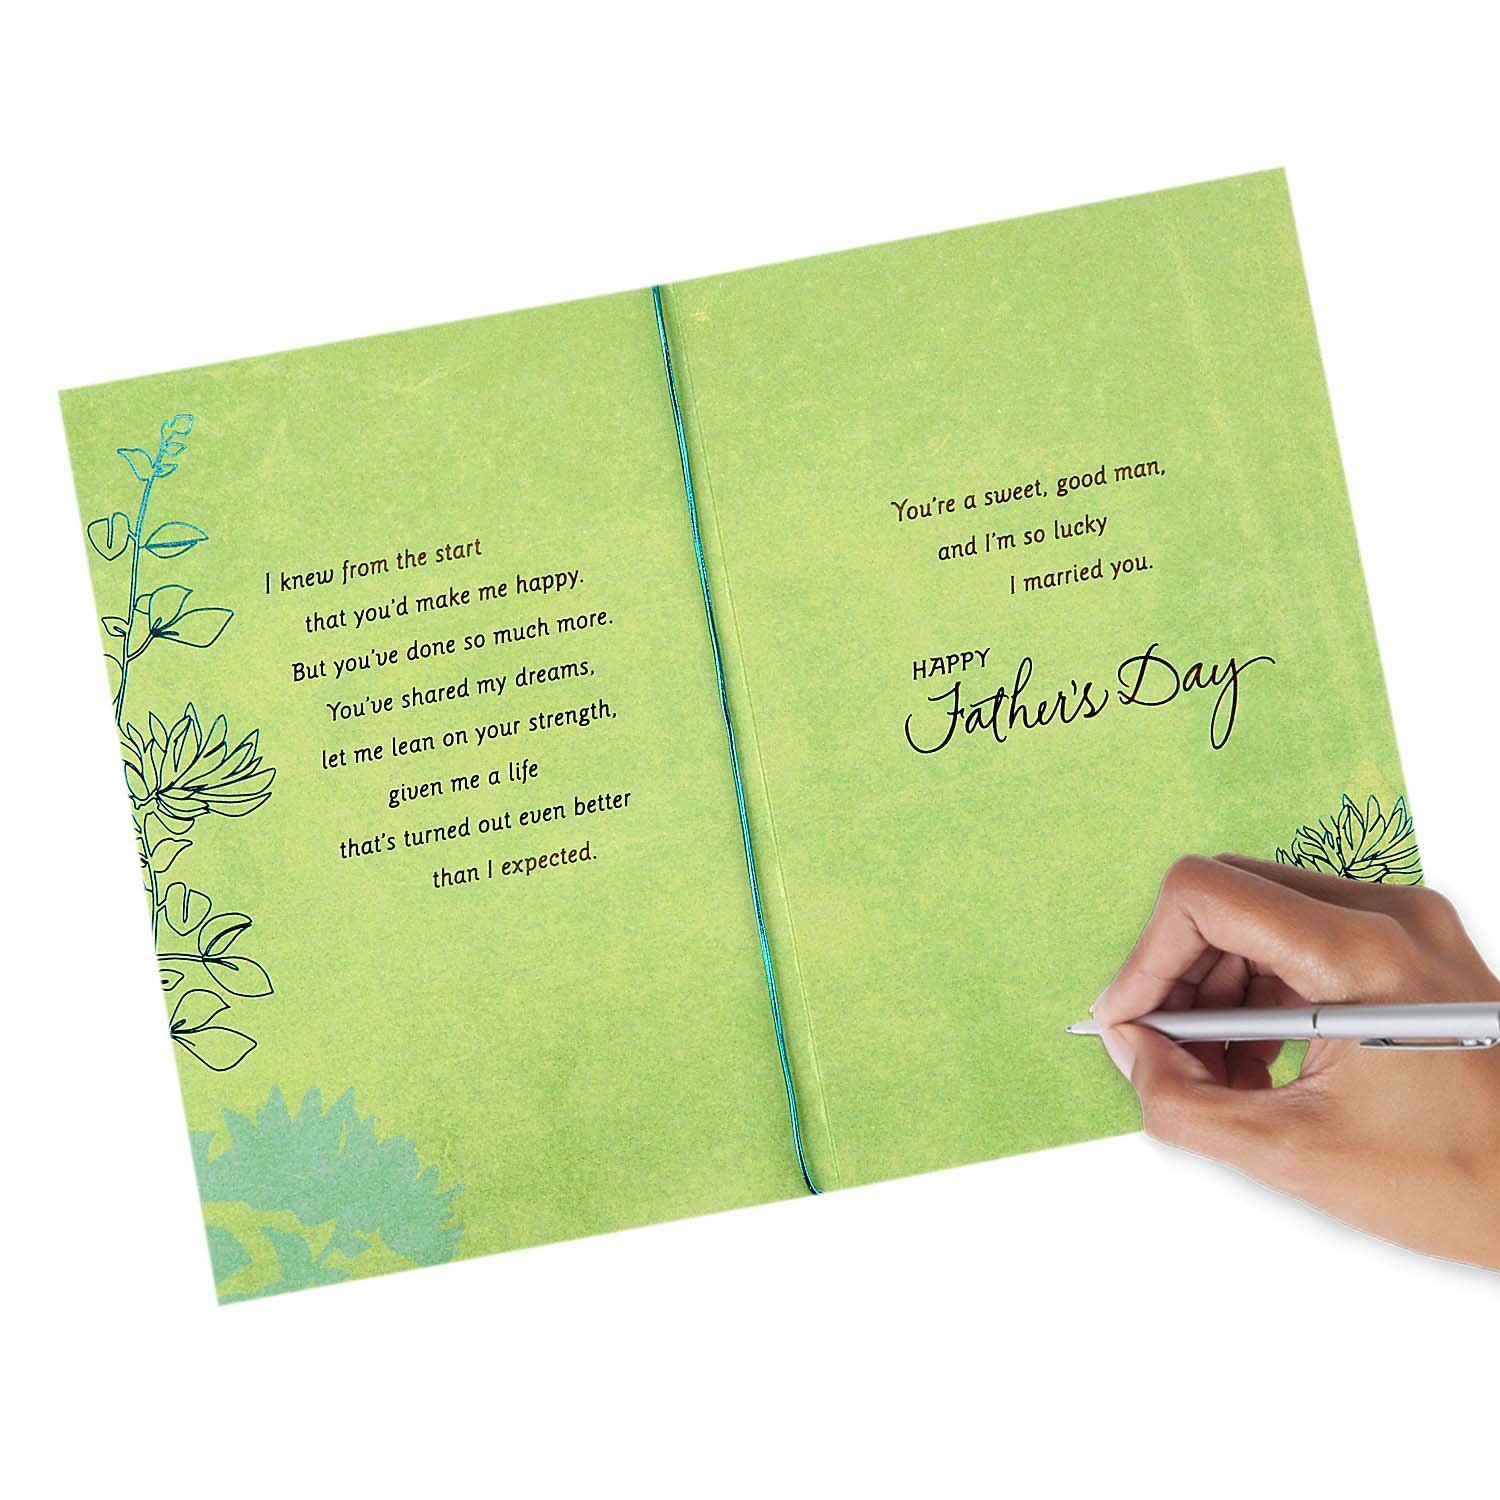 I knew from the start
that you'd make me happy.
But you've done so much more.
You've shared my dreams,
let me lean on your strength,
given me a life
that's turned out even better
than I expected.
You're a sweet, good man,
and I'm so lucky
I married you.
HAPPY
Father's Day